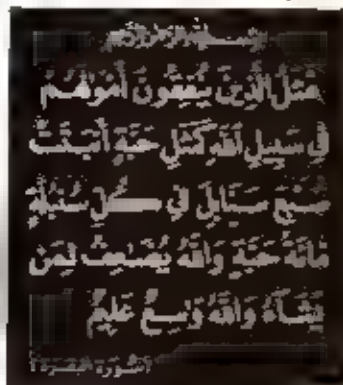 بسم الله الرحمن الرحيم
مَثَلُ الَّذِينَ يُنفِقُونَ أَمْوَالَهُمْ
فِي سَبِيلِ اللَّهِ كَمَثَلِ حَبَّةٍ أَنبَتَتْ
سَبْعَ سَنَابِلَ فِي كُلِّ سُنبُلَةٍ
مِائَةُ حَبَّةٍ وَاللَّهُ يُضَاعِفُ لِمَن
يَشَاءُ وَاللَّهُ وَاسِعٌ عَلِيمٌ
سورة البقرة